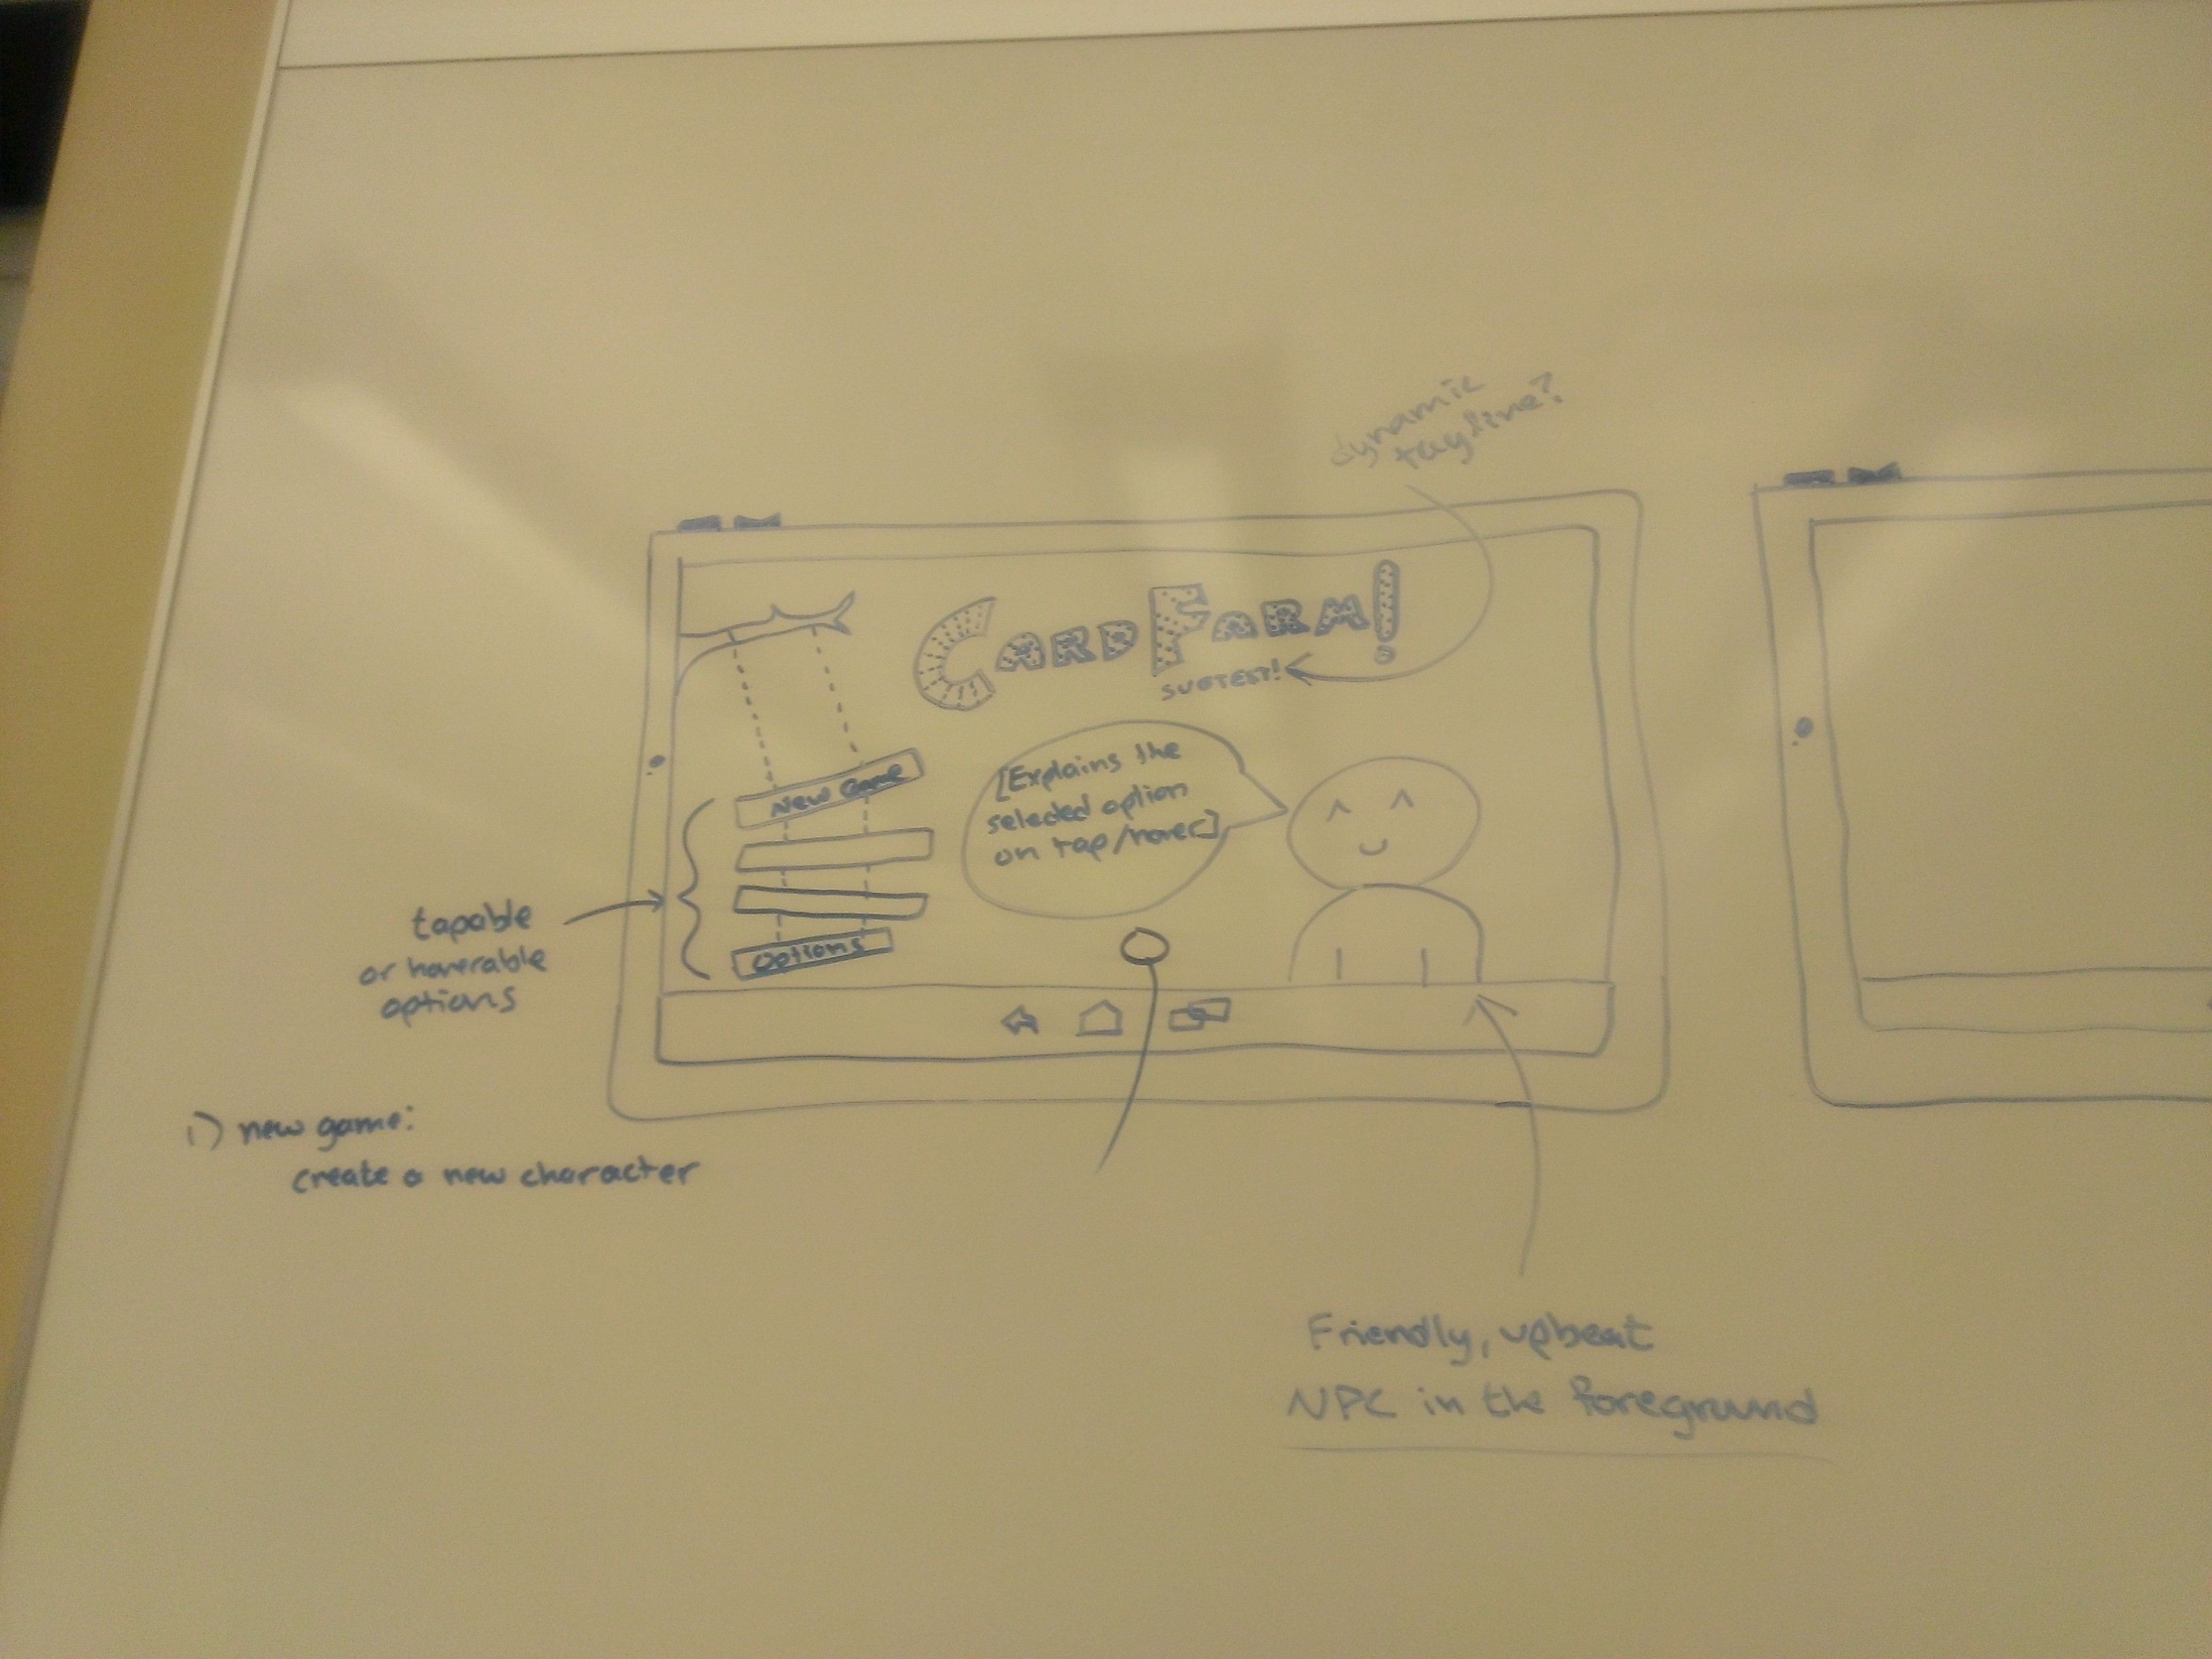 dynamic
tagline?
CARD FARM!
SUBTEXT!
[Explains the
selected option
on tap/hover]
New Game
Options
tapable
or hoverable
options
1) new game:
create a new character
Friendly, upbeat
NPC in the foreground